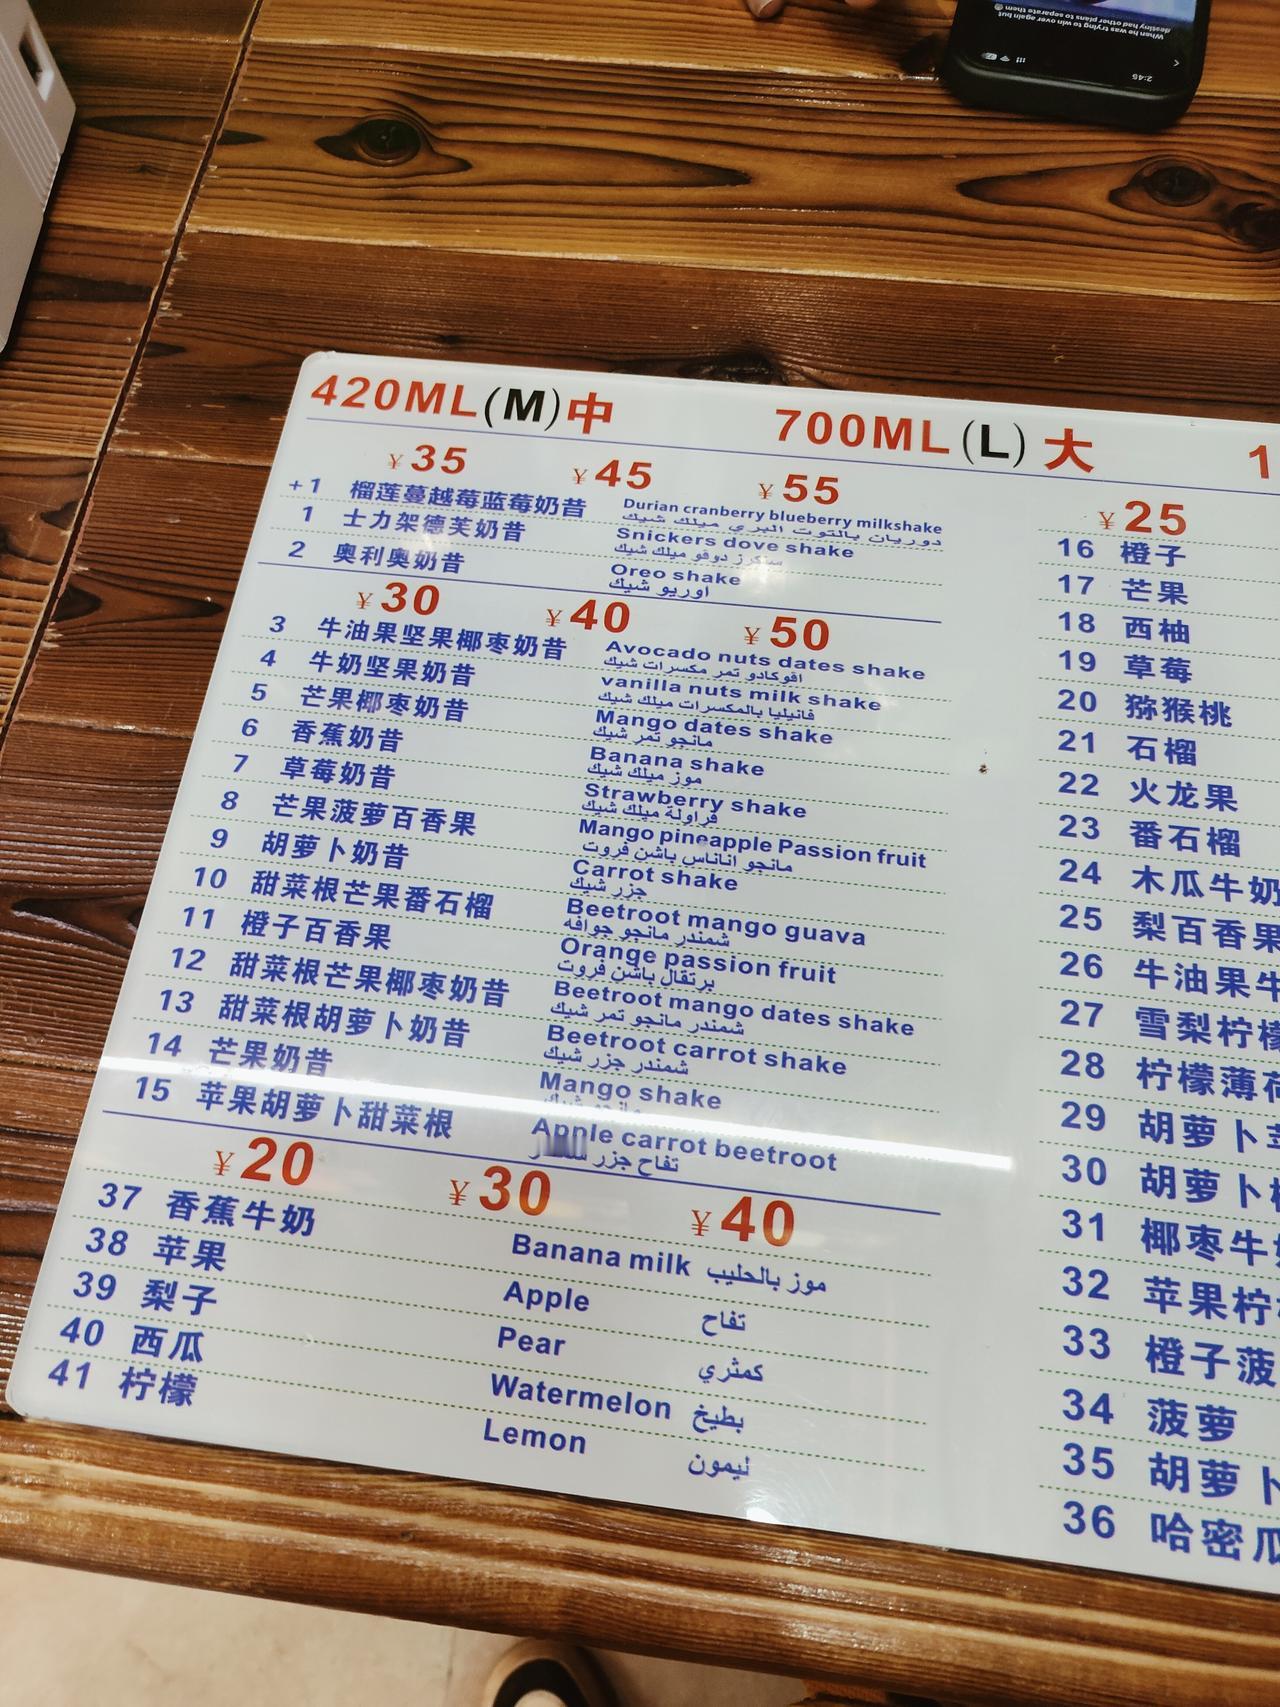 When he was trying over win to win again but
destiny had other plans to separate them
2:45
420ML(M)中 700ML(L)大 1
¥35 ¥45 ¥55
+1 榴莲蔓越莓蓝莓奶昔 Durian cranberry blueberry milkshake
دوريان بالتوت البري ميلك شيك
1 士力架德芙奶昔 Snickers dove shake
سنيكرز دوفو ميلك شيك
2 奥利奥奶昔 Oreo shake
اوريو شيك
¥30 ¥40 ¥50
3 牛油果坚果椰枣奶昔 Avocado nuts dates shake
افوكادو تمر مكسرات شيك
4 牛奶坚果奶昔 vanilla nuts milk shake
فانيليا بالمكسرات ميلك شيك
5 芒果椰枣奶昔 Mango dates shake
مانجو تمر شيك
6 香蕉奶昔 Banana shake
موز ميلك شيك
7 草莓奶昔 Strawberry shake
فراولة ميلك شيك
8 芒果菠萝百香果 Mango pineapple Passion fruit
مانجو اناناس باشن فروت
9 胡萝卜奶昔 Carrot shake
جزر شيك
10 甜菜根芒果番石榴 Beetroot mango guava
شمندر مانجو جوافه
11 橙子百香果 Orange passion fruit
برتقال باشن فروت
12 甜菜根芒果椰枣奶昔 Beetroot mango dates shake
شمندر مانجو تمر شيك
13 甜菜根胡萝卜奶昔 Beetroot carrot shake
شمندر جزر شيك
14 芒果奶昔 Mango shake
مانجو شيك
15 苹果胡萝卜甜菜根 Apple carrot beetroot
تفاح جزر
¥20 ¥30 ¥40
37 香蕉牛奶 Banana milk موز بالحليب
38 苹果 Apple تفاح
39 梨子 Pear كمثري
40 西瓜 Watermelon بطيخ
41 柠檬 Lemon ليمون
¥25
16 橙子
17 芒果
18 西柚
19 草莓
20 猕猴桃
21 石榴
22 火龙果
23 番石榴
24 木瓜牛奶
25 梨百香果
26 牛油果牛
27 雪梨柠檬
28 柠檬薄荷
29 胡萝卜
30 胡萝卜
31 椰枣牛
32 苹果柠
33 橙子菠
34 菠萝
35 胡萝卜
36 哈密瓜